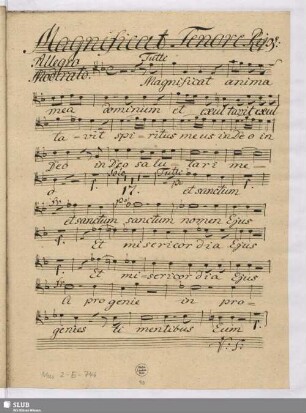 Magnificat. Tenore Ripз:
Allegro Tutti
Modrato.
Magnificat anima
mea dominum et exultavit exul
ta-vit spi-ritus meus in Deo in
Deo in Deo sa lu-tari me-
Solo Tutti
o 17. et sanctum
et sanctum sanctum nomen Ejus
Et misericordia Ejus
Et mi-sericordia Ejus
a progenie in pro-
genies ti mentibus Eum
V: S:
Mus. 2-E-744
SLUB